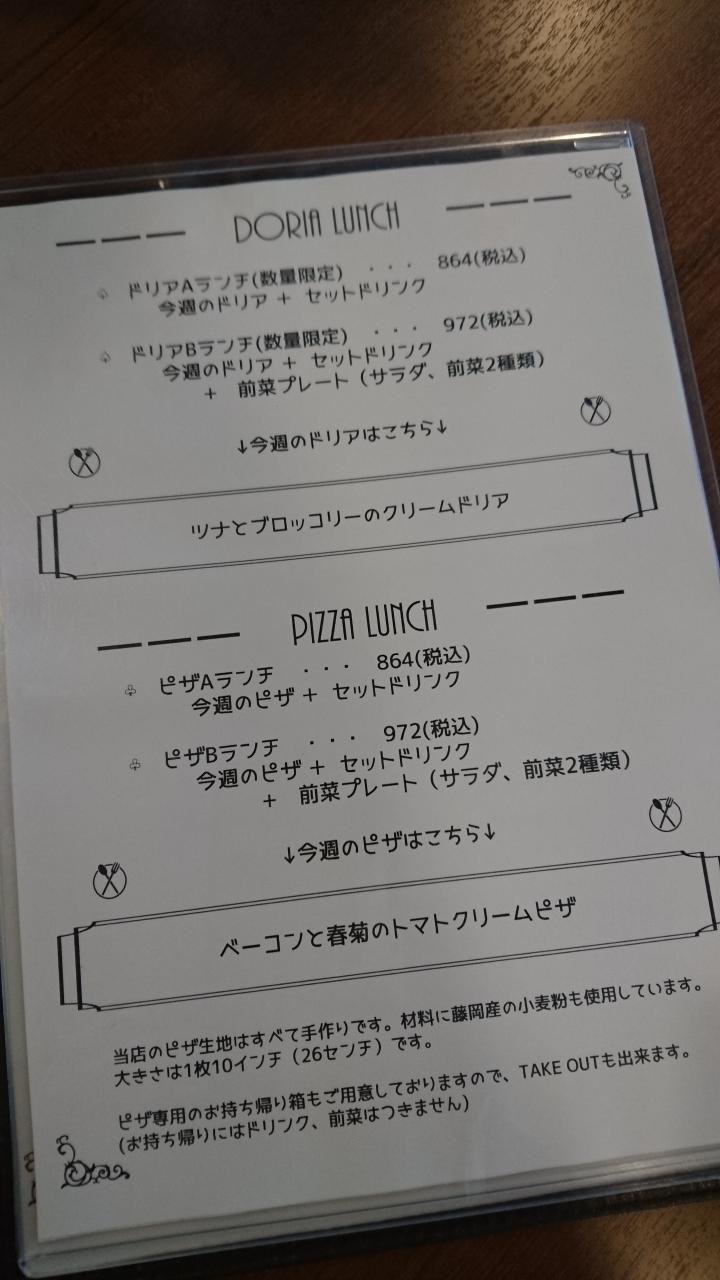 DORIA LUNCH
ドリアAランチ(数量限定) ・・・ 864(税込)
今週のドリア + セットドリンク
ドリアBランチ(数量限定) ・・・ 972(税込)
今週のドリア + セットドリンク
+ 前菜プレート（サラダ、前菜2種類）
↓今週のドリアはこちら↓
ツナとブロッコリーのクリームドリア
PIZZA LUNCH
ピザAランチ ・・・ 864(税込)
今週のピザ + セットドリンク
ピザBランチ ・・・ 972(税込)
今週のピザ + セットドリンク
+ 前菜プレート（サラダ、前菜2種類）
↓今週のピザはこちら↓
ベーコンと春菊のトマトクリームピザ
当店のピザ生地はすべて手作りです。材料に藤岡産の小麦粉も使用しています。
大きさは1枚10インチ（26センチ）です。
ピザ専用のお持ち帰り箱もご用意しておりますので、TAKE OUTも出来ます。
(お持ち帰りにはドリンク、前菜はつきません)